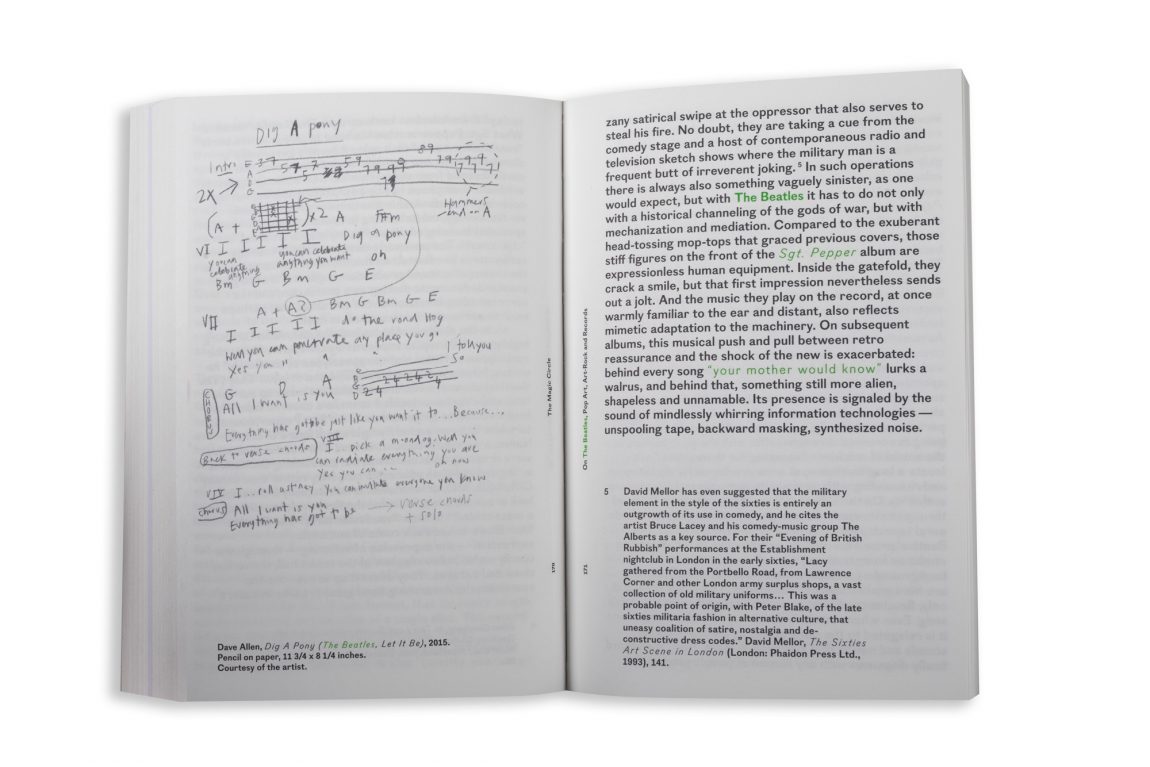 Dig A pony
Intro
2X
(A + ) x2 A F#m
VI I I I I I Dig a pony
you can celebrate anything you can celebrate anything you want oh
Bm G Bm G E
Hammers
on A on A
A + (A?) Bm G Bm G E
VII I I I I I do the road hog
Well you can penetrate any place you go
Yes you " " "
I told you
so
G D A
CHORUS
All I want is you
Everything has gotta be just like you want it to... Because...
Back to verse chords
VIII
I... pick a moondog. Well you
can radiate everything you are
Yes you can ... oh now
I... roll a stoney You can imitate everyone you know
Chorus All I want is you → verse chords
Everything has got to be + solo
Dave Allen, Dig A Pony (The Beatles, Let It Be), 2015.
Pencil on paper, 11 3/4 x 8 1/4 inches.
Courtesy of the artist.
The Magic Circle
170
On The Beatles, Pop Art, Art-Rock and Records
171
zany satirical swipe at the oppressor that also serves to
steal his fire. No doubt, they are taking a cue from the
comedy stage and a host of contemporaneous radio and
television sketch shows where the military man is a
frequent butt of irreverent joking. 5 In such operations
there is always also something vaguely sinister, as one
would expect, but with The Beatles it has to do not only
with a historical channeling of the gods of war, but with
mechanization and mediation. Compared to the exuberant
head-tossing mop-tops that graced previous covers, those
stiff figures on the front of the Sgt. Pepper album are
expressionless human equipment. Inside the gatefold, they
crack a smile, but that first impression nevertheless sends
out a jolt. And the music they play on the record, at once
warmly familiar to the ear and distant, also reflects
mimetic adaptation to the machinery. On subsequent
albums, this musical push and pull between retro
reassurance and the shock of the new is exacerbated:
behind every song “your mother would know” lurks a
walrus, and behind that, something still more alien,
shapeless and unnamable. Its presence is signaled by the
sound of mindlessly whirring information technologies —
unspooling tape, backward masking, synthesized noise.
5 David Mellor has even suggested that the military
element in the style of the sixties is entirely an
outgrowth of its use in comedy, and he cites the
artist Bruce Lacey and his comedy-music group The
Alberts as a key source. For their “Evening of British
Rubbish” performances at the Establishment
nightclub in London in the early sixties, “Lacy
gathered from the Portbello Road, from Lawrence
Corner and other London army surplus shops, a vast
collection of old military uniforms... This was a
probable point of origin, with Peter Blake, of the late
sixties militaria fashion in alternative culture, that
uneasy coalition of satire, nostalgia and de-
constructive dress codes.” David Mellor, The Sixties
Art Scene in London (London: Phaidon Press Ltd.,
1993), 141.